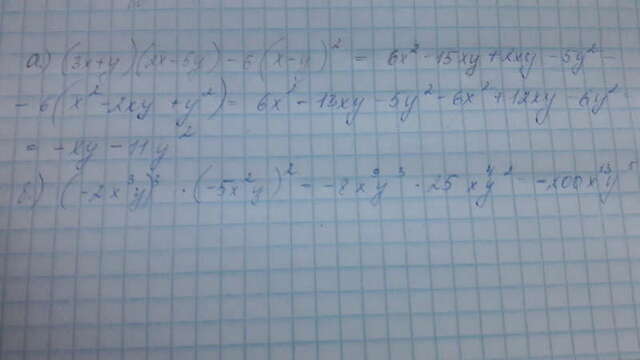 а) (3x+y)(2x-5y) - 6(x-y)² = 6x² - 15xy + 2xy - 5y² -
- 6(x² - 2xy + y²) = 6x² - 13xy - 5y² - 6x² + 12xy - 6y² =
= - xy - 11y²
б) (-2x³y)³ · (-5x²y)² = -8x⁹y³ · 25x⁴y² = -200x¹³y⁵